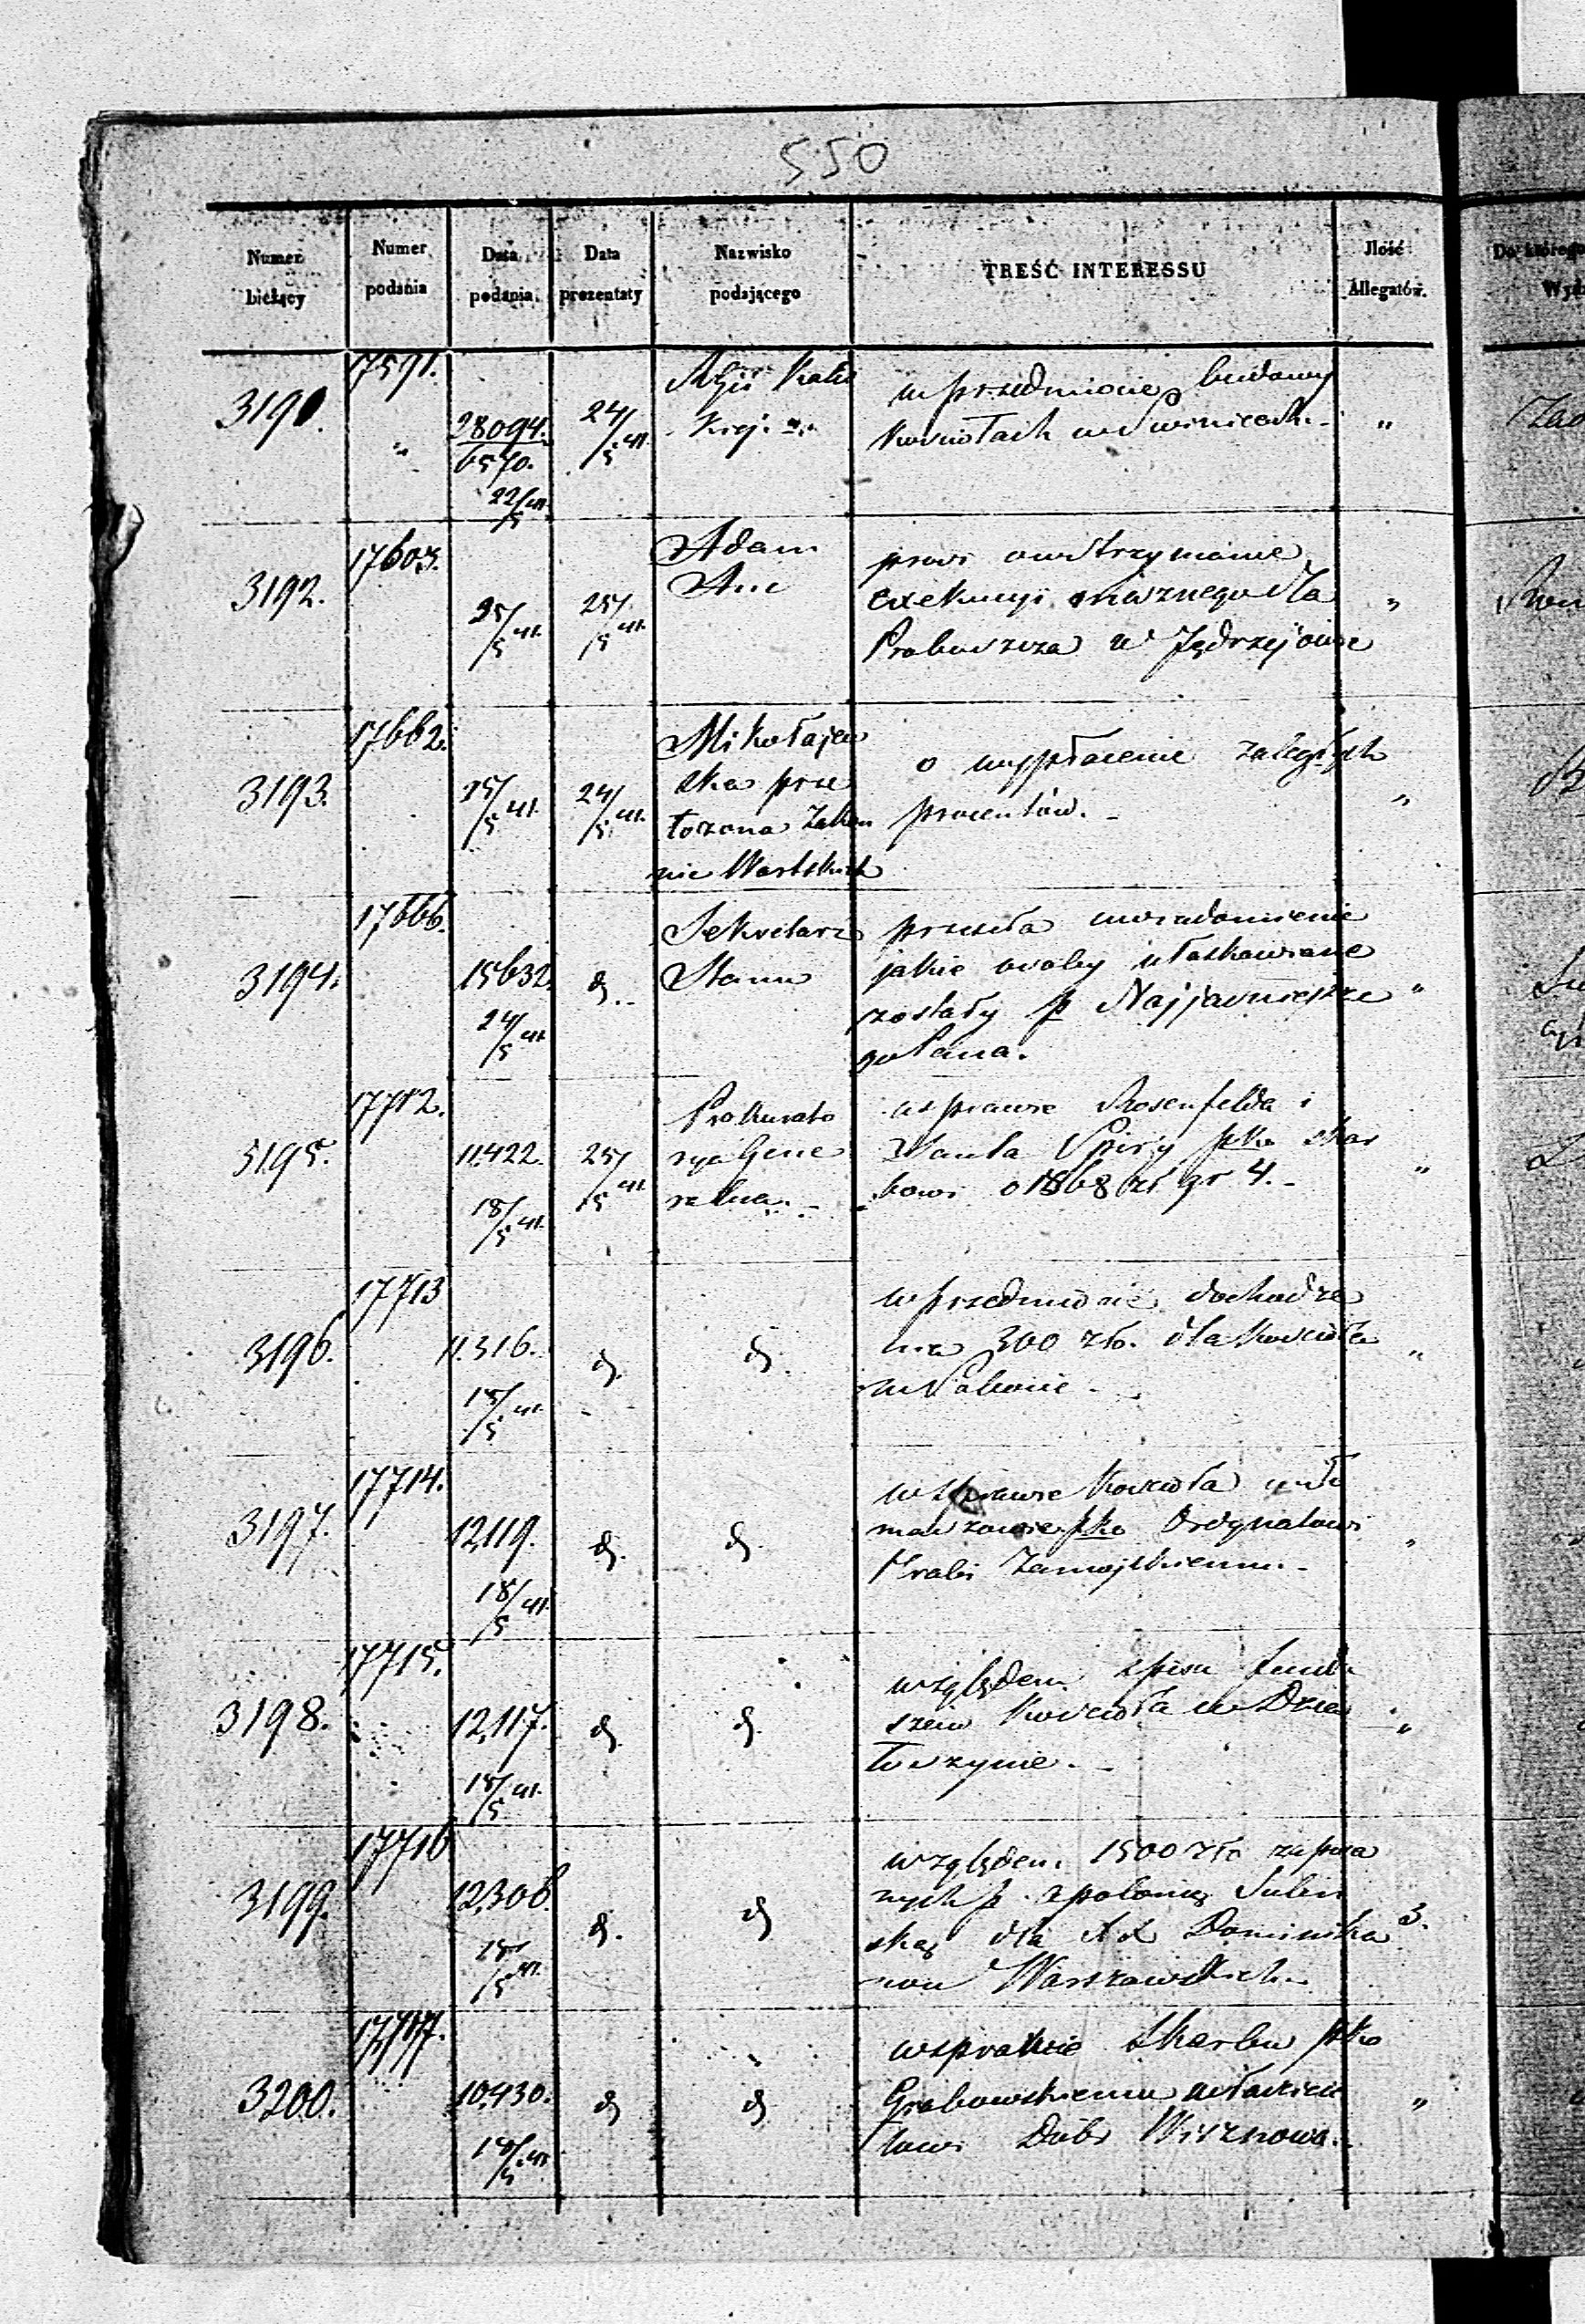 550
Numer bieżący
Numer podania
Data podania.
Data prezentaty
Nazwisko podającego
TREŚĆ INTERESSU
Jlość Allegatów.
3191.
17591.
28094.
6570.
22/5 41.
24/5 41.
w przedmiocie budowy
"
3192.
17603.
25/5 41.
25/5 41.
Adam
prosi o wstrzymanie
Proboszcza w Jędrzejowie
"
3193.
17662.
25/5 41.
24/5 41.
Mikołajew
ska prze
łożona Zakon
nic Wartskich
o wypłacenie zaległych
procentów.
"
3194.
17666.
15632.
24/5 41.
d.
Sekretarz
Stanu
przesyła uwiadomienie
jakie osoby ułaskawione
zostały p Najjaśniejsze
go Pana.
"
3195.
17712.
11.422.
18/5 41.
25/5 41.
Prokurato
rya Gene
ralna.
w sprawie Rosenfelda i
pko skar
bowi o 1868 zł gr 4.
"
3196.
17713
11.316.
15/5 41.
d.
d.
w przedmiocie dochodze
nia 300 zło. dla kościoła
"
3197.
17714.
12,119.
18/5 41.
d.
d.
w sprawie kościoła w To
maszowie pko Ordynatowi
Hrabi Zamojskiemu.
"
3198.
17715.
12,117.
18/5 41.
d.
d.
względem spisu fundu
szów kościoła w Dzia
łoszynie.
"
3199.
17716
12,306.
25/5 41.
d.
d
względem 1500 zło zapisa
nych p. Apolonię Sulin
ską dla XX Dominika
now Warszawskich.
3.
3200.
17717.
10,430.
18/5 41.
d
d
w sprawie Skarbu pko
Grabowskiemu właścicie
lowi Dóbr
"